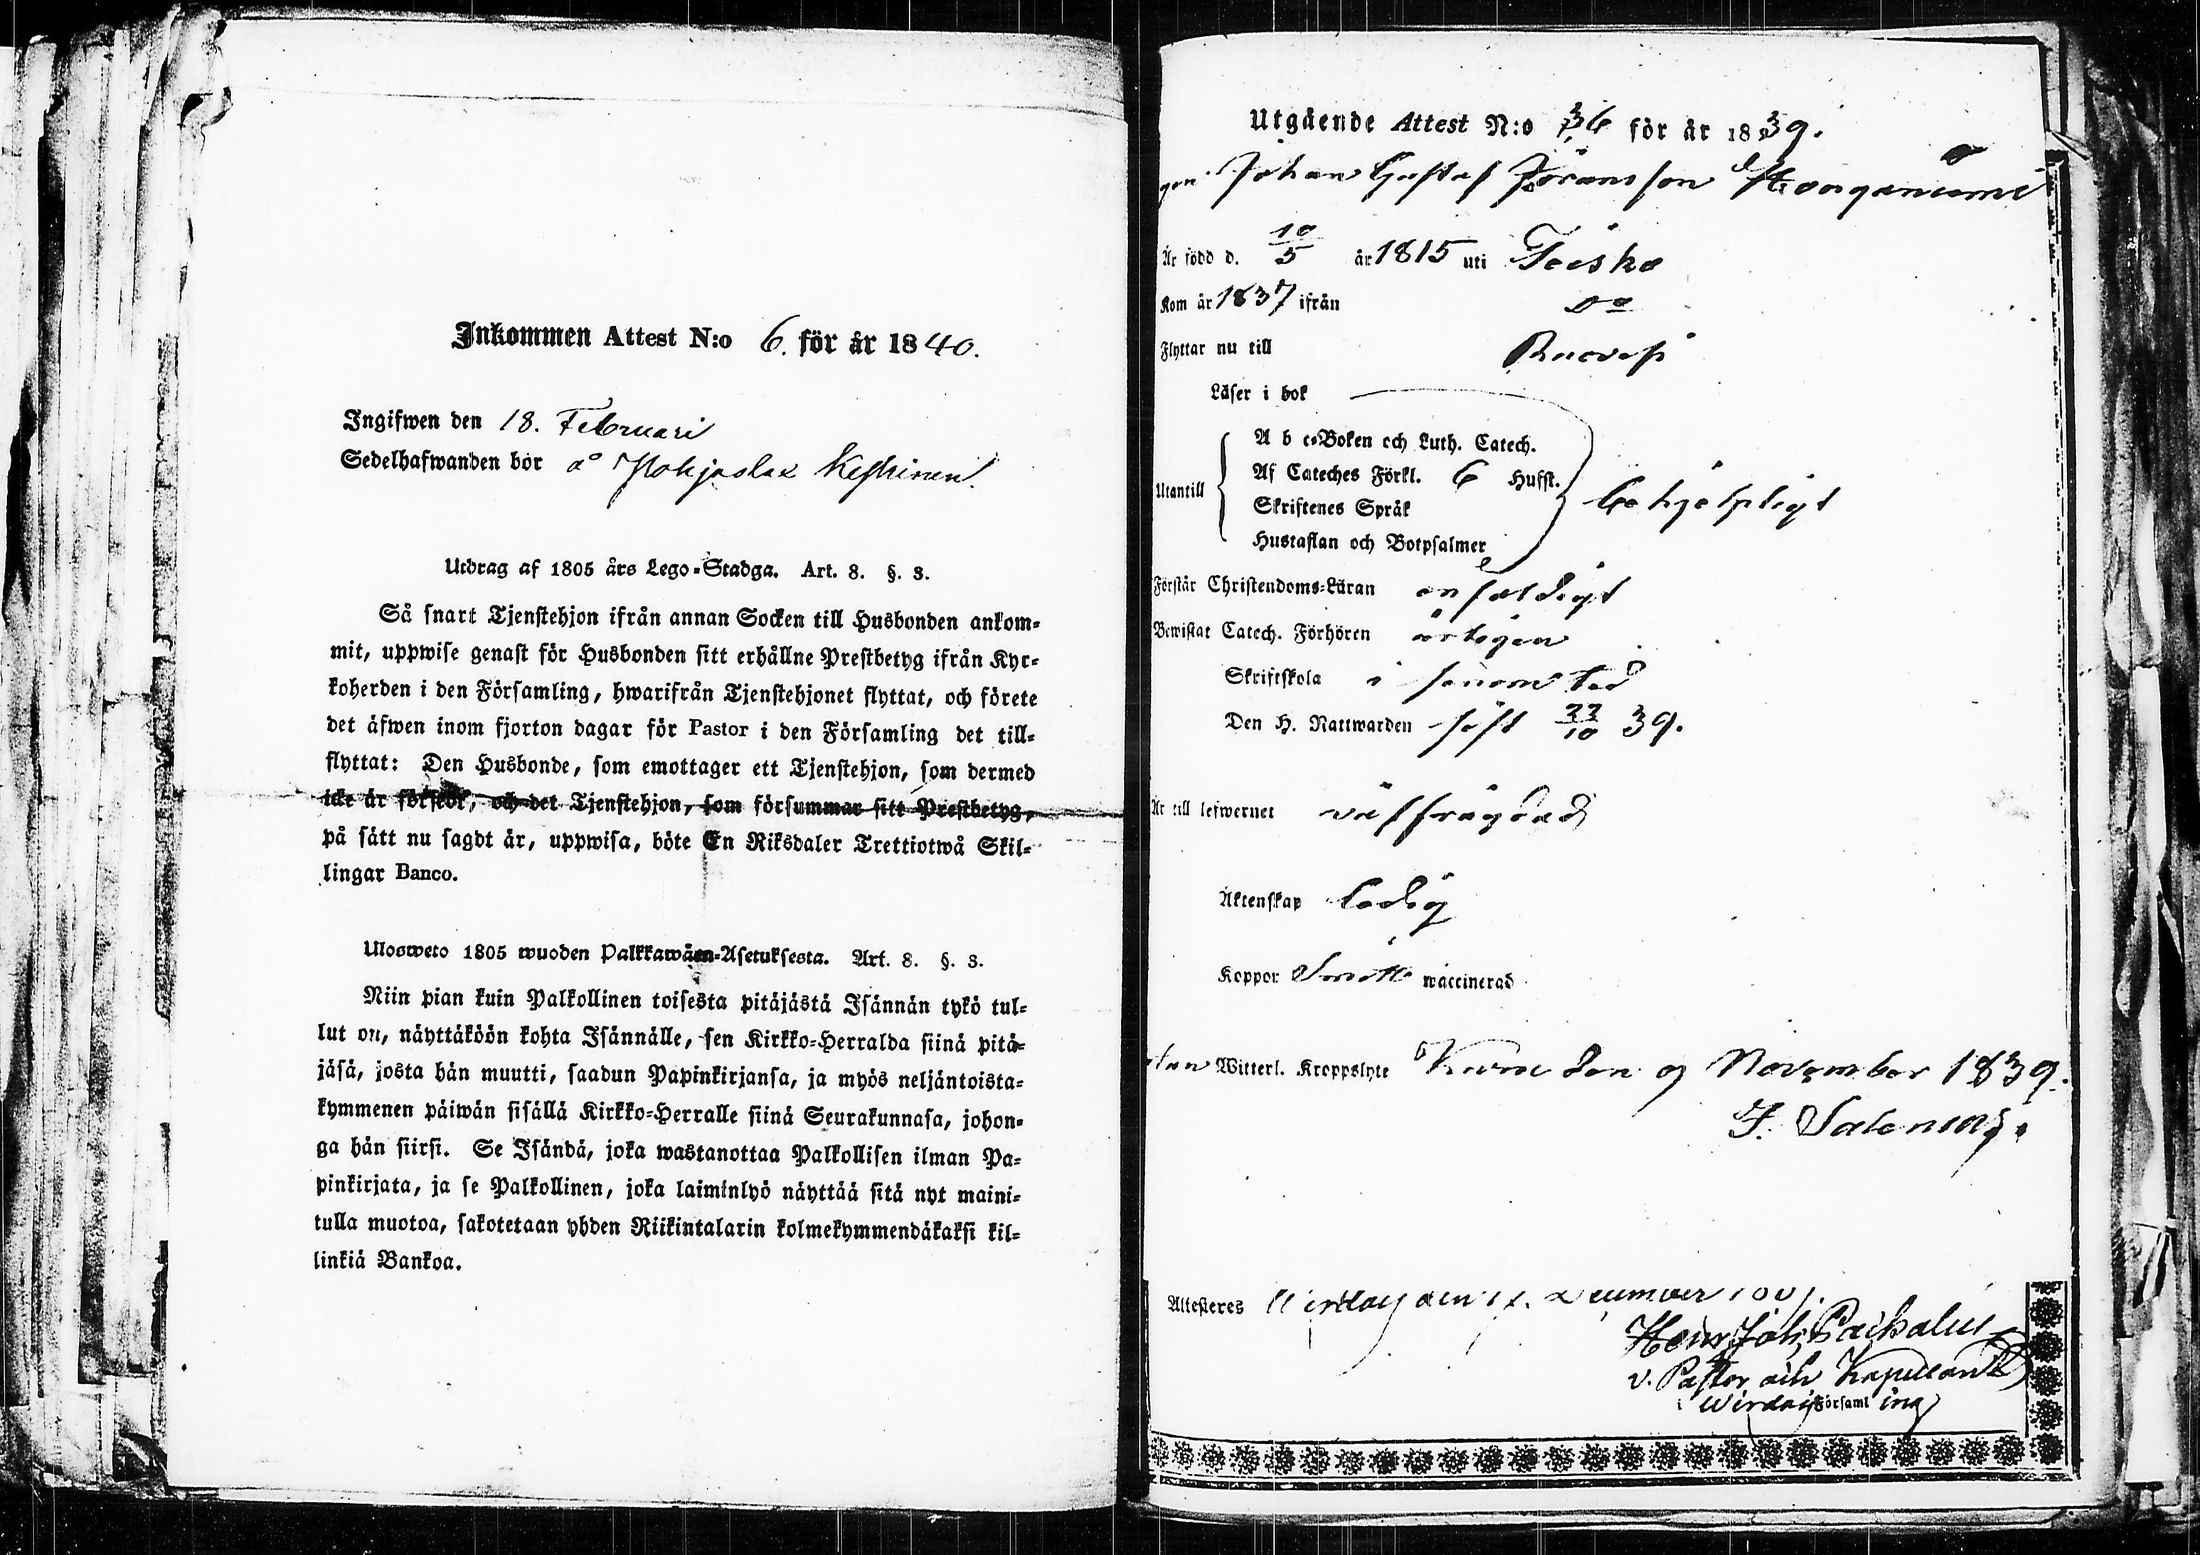 Inkommen Attest N:o 6. för år 1840.
Ingifwen den 18. Februari
Sedelhafwanden bor å Pohjaslax Keskinen.
Utdrag af 1805 års Lego-Stadga. Art. 8. §. 3.
Så snart Tjenstehjon ifrån annan Socken till Husbonden ankom-
mit, uppwise genast för Husbonden sitt erhållne Prestbetyg ifrån Kyr-
koherden i den Församling, hwarifrån Tjenstehjonet flyttat, och förete
det äfwen inom fjorton dagar för Pastor i den Församling det till-
flyttat: Den Husbonde, som emottager ett Tjenstehjon, som dermed
icke är försedt, och det Tjenstehjon, som försummar sitt Prestbetyg,
på sätt nu sagdt är, uppwisa, böte En Riksdaler Trettiotwå Skil-
lingar Banco.
Ulosweto 1805 wuoden Palkkawäen-Asetuksesta. Art. 8. §. 3.
Niin pian kuin Palkollinen toisesta pitäjästä Isännän tykö tul-
lut on, näyttäköön kohta Isännälle, sen Kirkko-Herralda siinä pitä-
jäsä, josta hän muutti, saadun Papinkirjansa, ja myös neljäntoista-
kymmenen päiwän sisällä Kirkko-Herralle siinä Seurakunnasa, johon-
ga hän siirsi. Se Isändä, joka wastanottaa Palkollisen ilman Pa-
pinkirjata, ja se Palkollinen, joka laiminlyö näyttää sitä nyt maini-
tulla muotoa, sakotetaan yhden Riikintalarin kolmekymmendäkaksi kil-
linkiä Bankoa.
Utgående Attest N:o 36 för år 1839.
Johan Gustaf Göransson
Är född d. 10/5 år 1815 uti Teisko
Kom år 1837 ifrån Do
Flyttar nu till Ruovesi
Läser i bok
Utantill
A b c-Boken och Luth. Catech.
Af Cateches Förkl. 6 Hufst.
Skriftenes Språk
Hustaflan och Botpsalmer
behjelpligt
Förstår Christendoms-Läran enfaldigt
Bewistat Catech. Förhören årligen
Skriftskola i sinom tid
Den H. Nattwarden sist 22/10 39.
Är till lefwernet välfrägdad
Äktenskap ledig
Koppor Smitt waccinerad
utan Witterl. Kroppslyte Kuru den 9 November 1839.
F. Salenius.
Attesteres Wirdois den 17. December
Henr. Joh. Pacchalius
v. Pastor och Kapellan
i Wirdois Församling